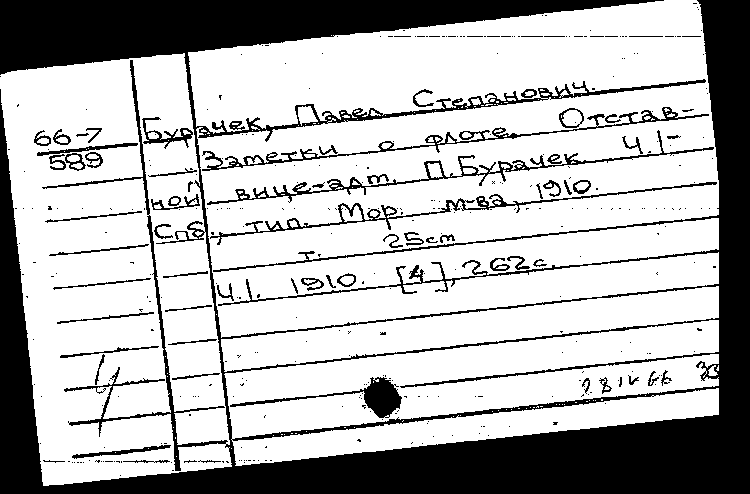 66-7
589
Бурачек, Павел Степанович.
Заметки о флоте. Отстав-
ной вице-адм. П. Бурачек Ч.1-
Спб., тип. Мор. м-ва, 1910.
т. 25cm
Ч.1. 1910. [4], 262с.
28 IV 66